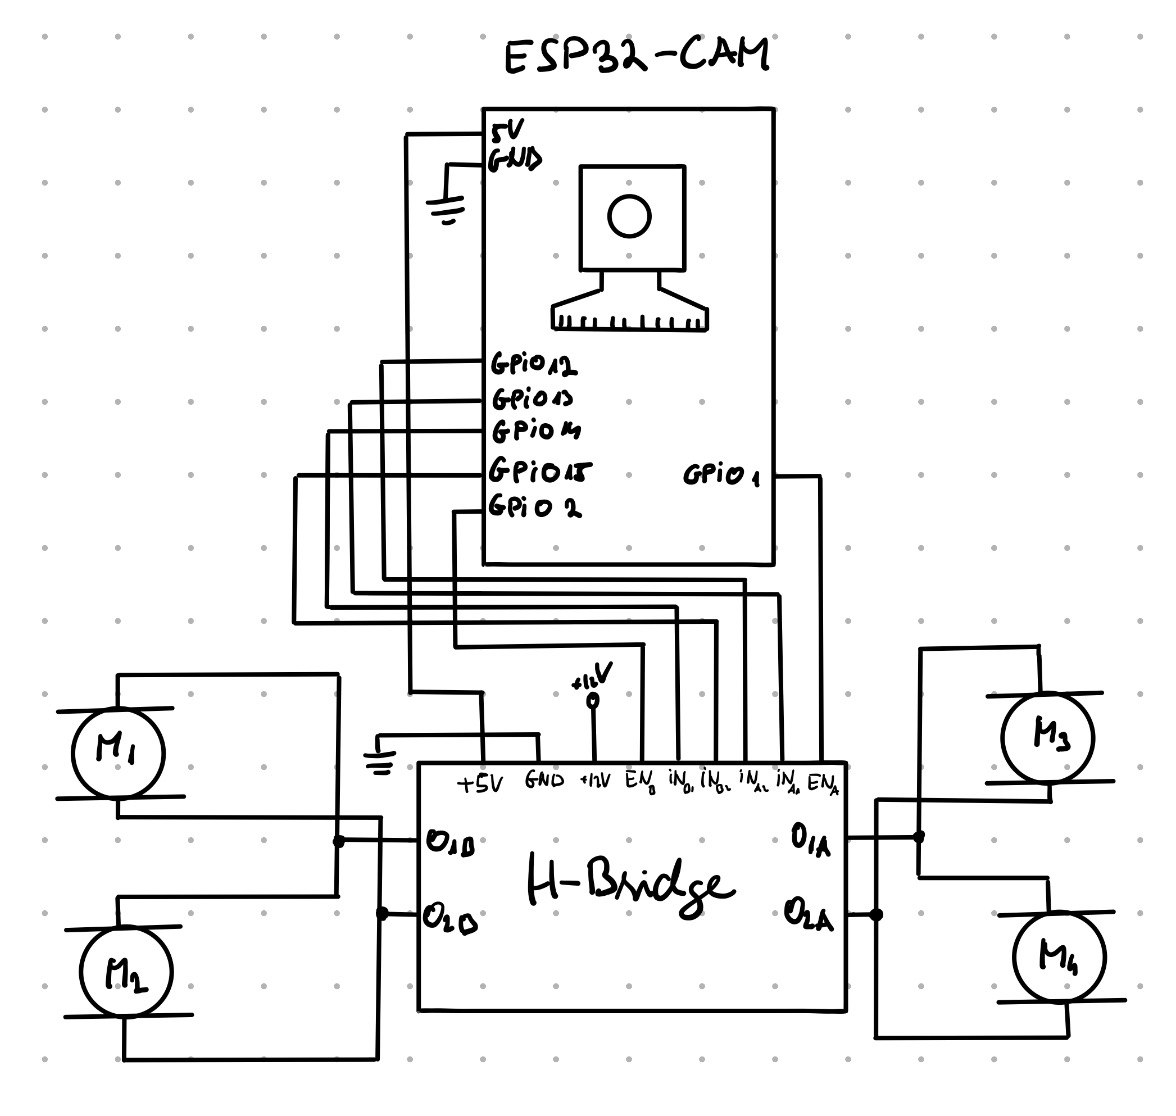 ESP32-CAM
5V
GND
GPiO12
GPiO13
GPiO14
GPiO15
GPiO 2
GPiO1
+12V
+5V GND +12V ENB iNB1 iNB2 iNA2 iNA1 ENA
M1
M2
M3
M4
O1B
O2B
O1A
O2A
H-Bridge